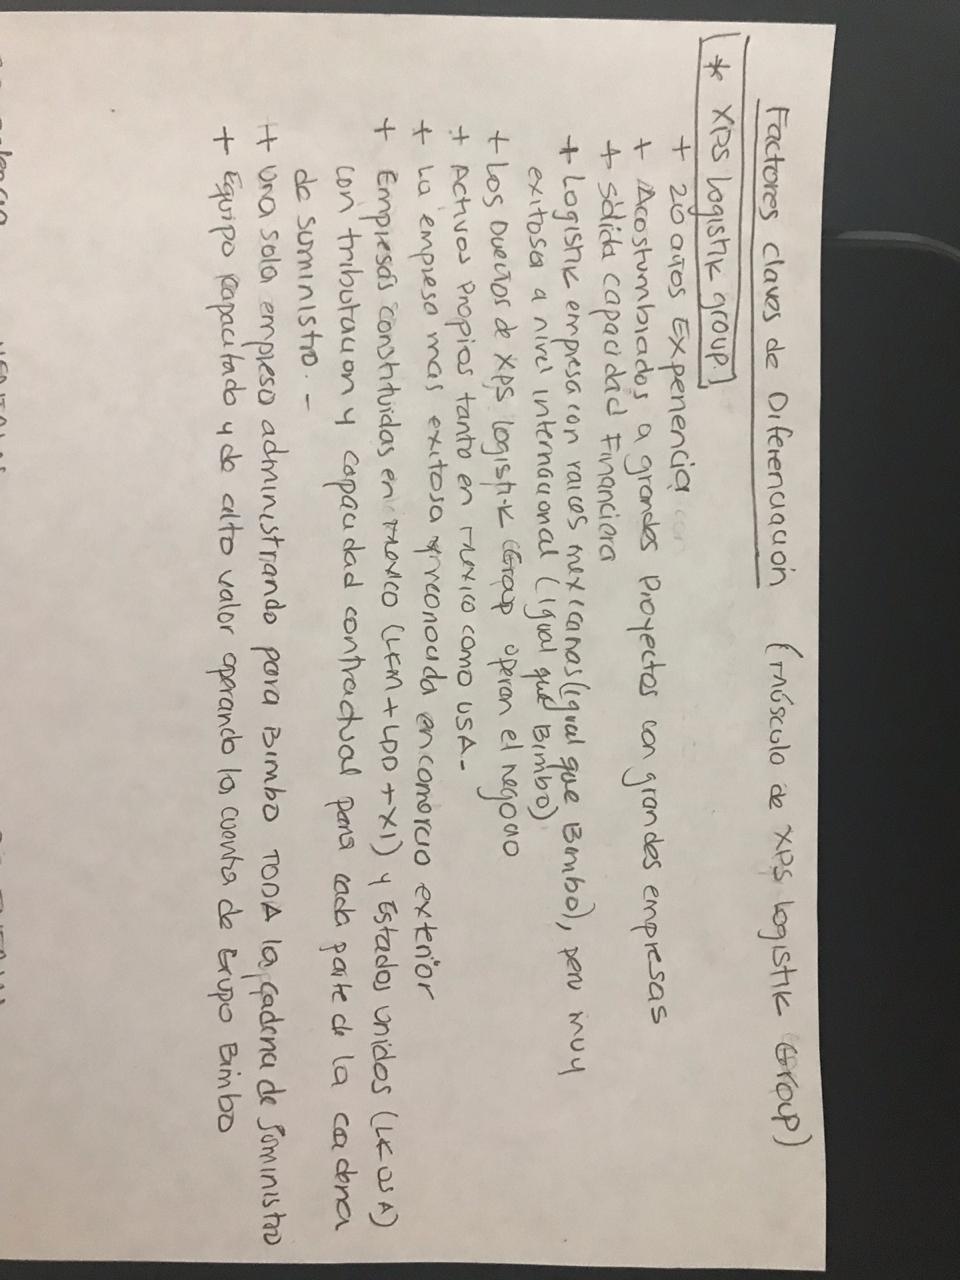 Factores claves de Diferenciación (músculo de XPS Logistik Group)
* XPS Logistik group.
+ 20 años Experiencia
+ Acostumbrados a grandes Proyectos con grandes empresas
+ sólida capacidad Financiera
+ Logistik empresa con raices mexicanas (igual que Bimbo), pero muy
exitosa a nivel internacional (igual que Bimbo)
+ Los Dueños de XPS Logistik Group operan el negocio
+ Activos Propios tanto en Mexico como USA -
+ La empresa mas exitosa y reconocida en comercio exterior
+ Empresas constituidas en Mexico (LEM + LDD + XI) y Estados Unidos (LK USA)
con tributacion y capacidad contractual para cada parte de la cadena
de suministro. -
+ Una sola empresa administrando para Bimbo TODA la cadena de Suministro
+ Equipo capacitado y de alto valor operando la cuenta de Grupo Bimbo